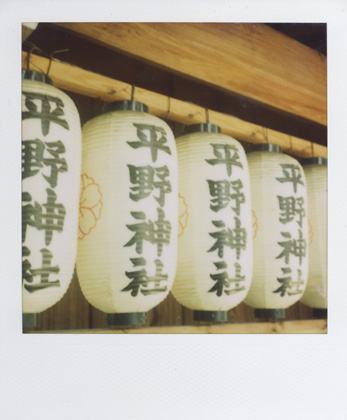 平野神社
平野神社
平野神社
平野神社